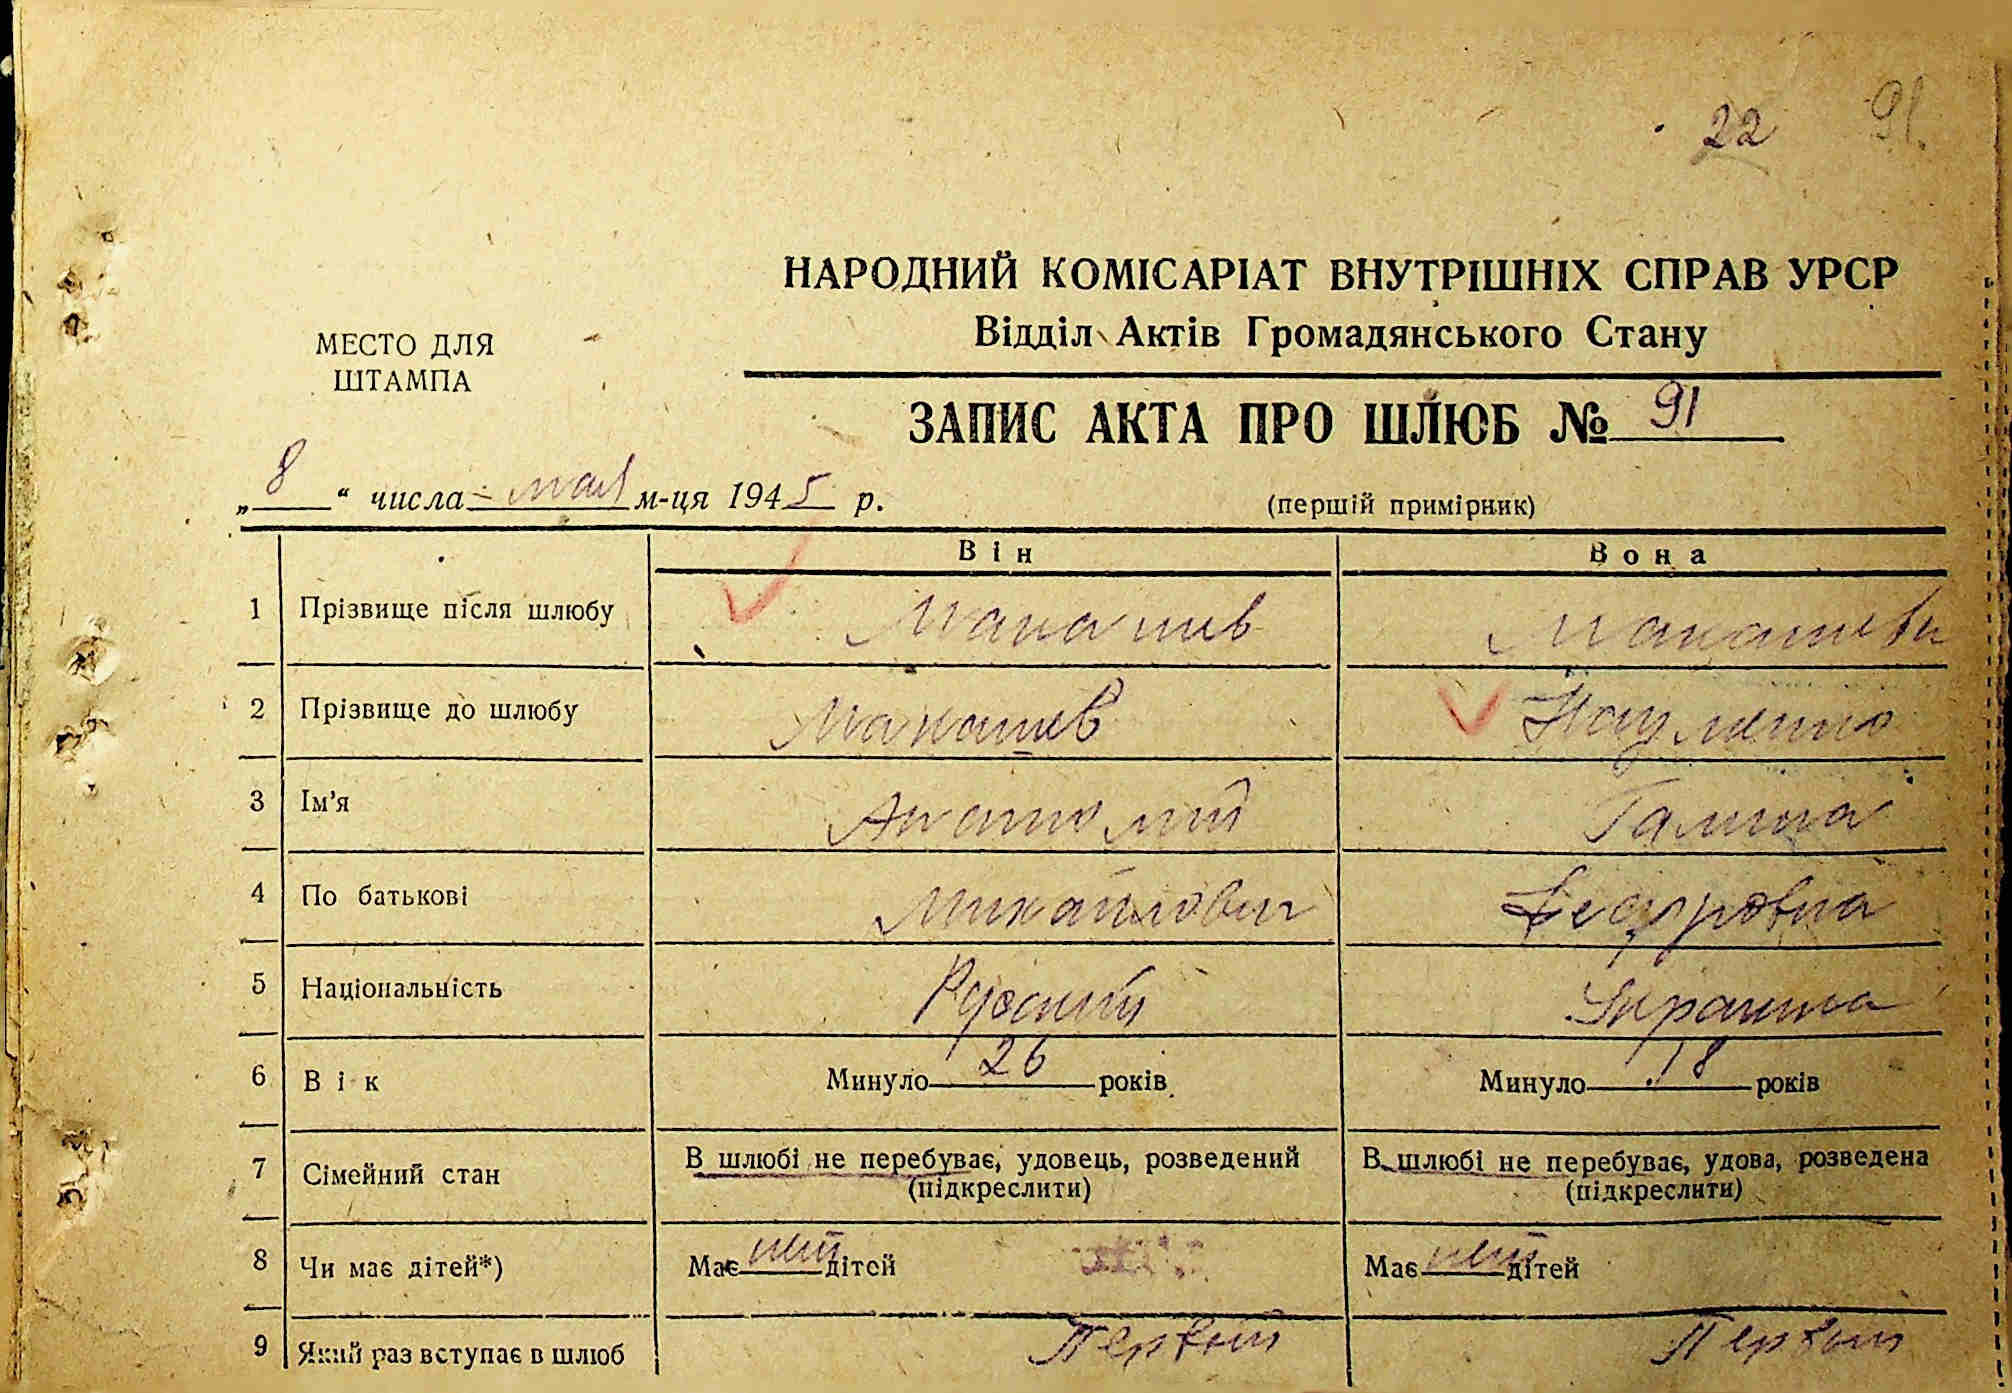 22 91.
НАРОДНИЙ КОМІСАРІАТ ВНУТРІШНІХ СПРАВ УРСР
Відділ Актів Громадянського Стану
МЕСТО ДЛЯ
ШТАМПА
ЗАПИС АКТА ПРО ШЛЮБ № 91
„8“ числа мая м-ця 1945 р.
(першій примірник)
Він Вона
1 Прізвище після шлюбу Манашев Манашева
2 Прізвище до шлюбу Манашев Науменко
3 Ім'я Анатолий Галина
4 По батькові Михайлович Федоровна
5 Національність Русский Украинка
6 Вік Минуло 26 років Минуло 18 років
7 Сімейний стан В шлюбі не перебуває, удовець, розведений В шлюбі не перебуває, удова, розведена
(підкреслити) (підкреслити)
8 Чи має дітей*) Має нет дітей Має нет дітей
9 Який раз вступає в шлюб Первый Первый